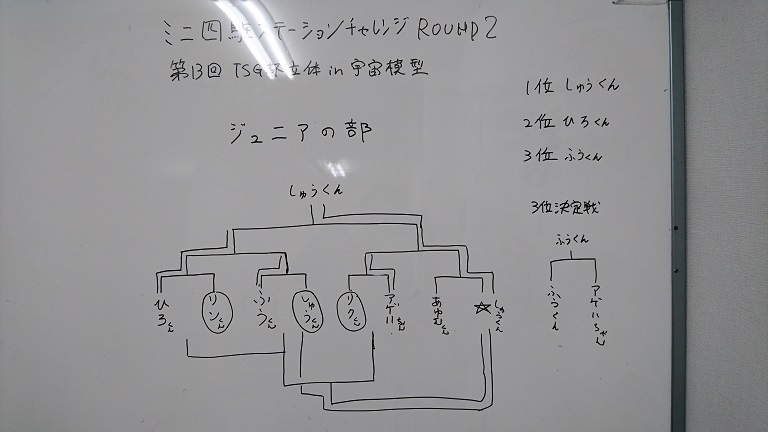 ミニ四駆ステーションチャレンジ ROUND2
第13回 TSG杯立体 in 宇宙模型
ジュニアの部
1位 しゅうくん
2位 ひろくん
3位 ふうくん
しゅうくん
ひろくん
リンくん
ふうくん
しゅうくん
リクくん
アゲハちゃん
あゆむくん
☆しゅうくん
3位決定戦
ふうくん
ふうくん
アゲハちゃん